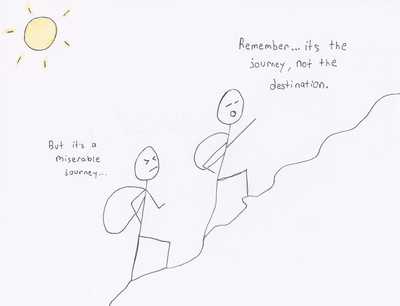 Remember... it's the
journey, not the
destination.
But it's a
miserable
journey...